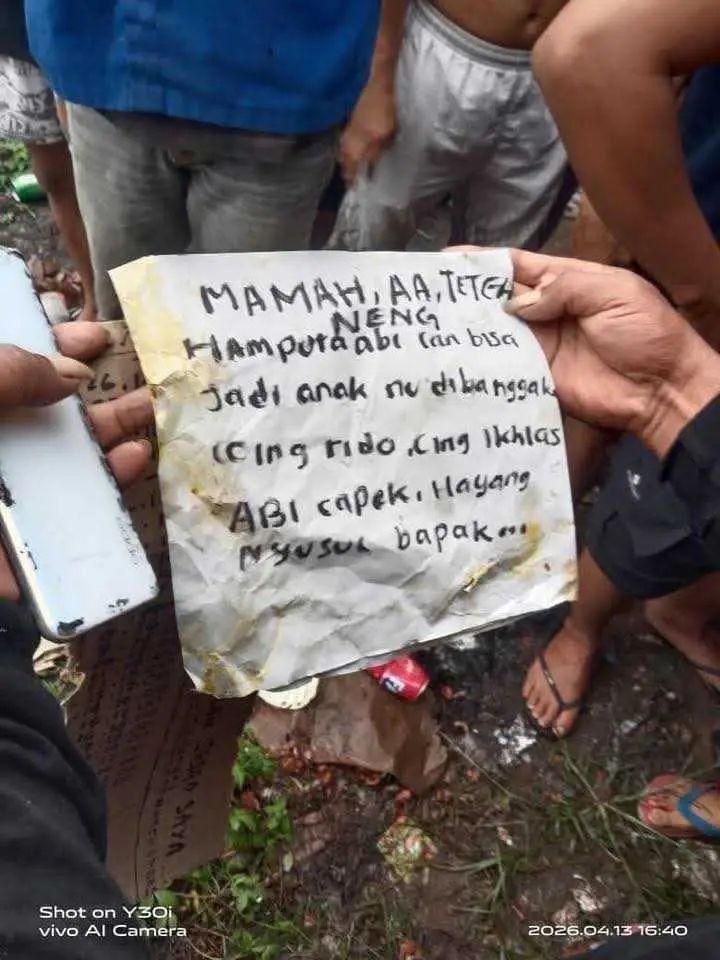 MAMAH, AA, TETEH
NENG
Hampura abi can bisa
jadi anak nu dibanggak
cing rido, cing ikhlas
ABI capek, Hayang
Nyusul bapak...
26.
SAYA
Shot on Y30i
vivo AI Camera
2026.04.13 16:40